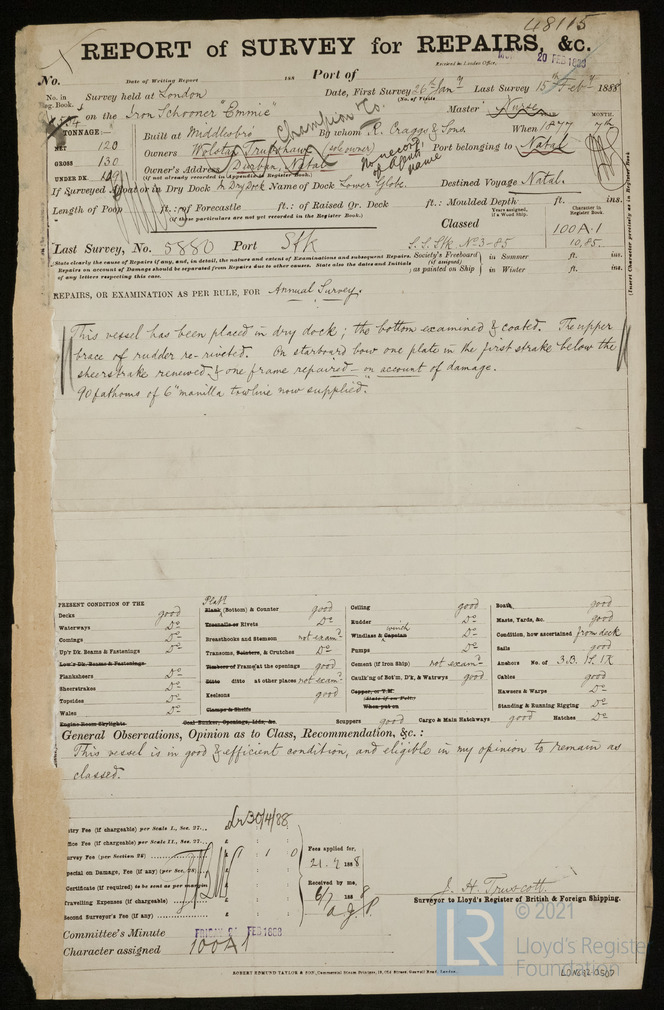 48115
REPORT of SURVEY for REPAIRS, &c.
Received in London Office, 20 FEB 1888
No. Date of Writing Report 188 Port of
No. in Reg. Book. Survey held at London Date, First Survey 26th Jany Last Survey 15th Feby 1888
(No. of Visits
on the Iron Schooner "Emmie" Master
TONNAGE:— Built at Middlesbro By whom R. Craggs & Sons. When 1877 MONTH. 7th
NET 120 Owners Wolstan Trubshaw (sole owner) Port belonging to Natal
Champion Co.
no record of Agents name
GROSS 130 Owner's Address Durban, Natal
UNDER DK. 119 (If not already recorded in Appendix of Register Book.)
If Surveyed Afloat or in Dry Dock In Dry Dock Name of Dock Lower Globe. Destined Voyage Natal.
Length of Poop ft.: of Forecastle ft.: of Raised Qr. Deck ft.: Moulded Depth ft. ins.
(If these particulars are not yet recorded in the Register Book.)
Classed Years assigned, if a Wood Ship. Character in Register Book.
100A.1
10,85.
Last Survey, No. 5880 Port Stk S.S. Stk No 3-85
State clearly the cause of Repairs if any, and, in detail, the nature and extent of Examinations and subsequent Repairs.
Repairs on account of Damage should be separated from Repairs due to other causes. State also the dates and Initials
of any letters respecting this case.
Society's Freeboard (if assigned) as painted on Ship in Summer ft. ins.
in Winter ft. ins.
(Insert Character precisely as in Register Book
REPAIRS, OR EXAMINATION AS PER RULE, FOR Annual Survey.
This vessel has been placed in dry dock; the bottom examined & coated. The upper
brace of rudder re-riveted. On starboard bow one plate in the first strake below the
sheerstrake renewed & one frame repaired – on account of damage.
90 fathoms of 6" manilla towline now supplied.
PRESENT CONDITION OF THE
Decks good
Waterways Do
Comings Do
Up'r Dk. Beams & Fastenings Do
Low'r Dk. Beams & Fastenings
Planksheers Do
Sheerstrakes Do
Topsides Do
Wales Do
Engine Room Skylights
Plat'g
Plank (Bottom) & Counter good
Treenails or Rivets Do
Breasthooks and Stemson not exam'd
Transoms, Pointers, & Crutches Do
Timbers of Frame at the openings good
Ditto ditto at other places not exam'd
Keelsons good
Clamps & Shelfs
Coal Bunker, Openings, Lids, &c.
Ceiling good
Rudder Do
winch
Windlass & Capstan Do
Pumps Do
Cement (if Iron Ship) not exam'd
Caulk'ng of Bot'm, D'k, & Watrwys good
Copper, or Y.M.
(State if on Felt)
When put on
Scuppers good Cargo & Main Hatchways good Hatches Do
Boats good
Masts, Yards, &c. good
Condition, how ascertained from deck
Sails good
Anchors No. of 3.B. 1S. 1K
Cables good
Hawsers & Warps Do
Standing & Running Rigging Do
General Observations, Opinion as to Class, Recommendation, &c.:
This vessel is in good & efficient condition, and eligible in my opinion to remain as
classed.
30/4/88
Entry Fee (if chargeable) per Scale I., Sec. 27... £
Office Fee (if chargeable) per Scale II., Sec. 27... £
Survey Fee (per Section 28) £ 1 : 1 : 0
Special on Damage, Fee (if any) (per Sec. 28) £
Certificate (if required) to be sent as per margin
Travelling Expenses (if chargeable) £
Second Surveyor's Fee (if any) £
Fees applied for, 21.2 1888
Received by me, 6/7 1888
J. H. Truscott.
Surveyor to Lloyd's Register of British & Foreign Shipping.
Committee's Minute FRIDAY FEB 1888
Character assigned 100A1
ROBERT EDMUND TAYLOR & SON, Commercial Steam Printers, 19, Old Street, Goswell Road, London.
© 2021
LR
Lloyd's Register
Foundation